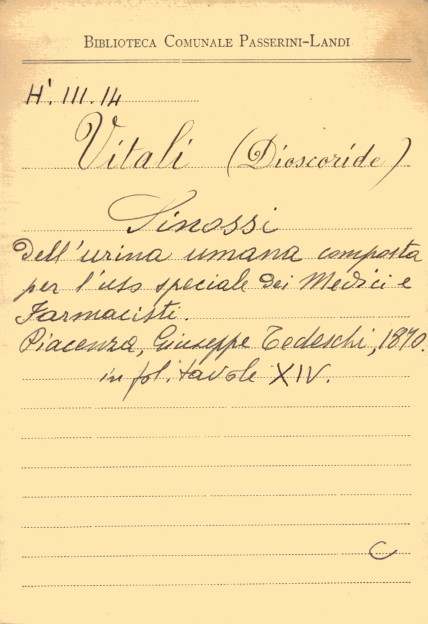 BIBLIOTECA COMUNALE PASSERINI-LANDI
H'. III. 14
Vitali (Dioscoride)
Sinossi
dell'urina umana composta
per l'uso speciale dei Medici e
Farmacisti.
Piacenza, Giuseppe Tedeschi, 1870.
in fol. tavole XIV.
C